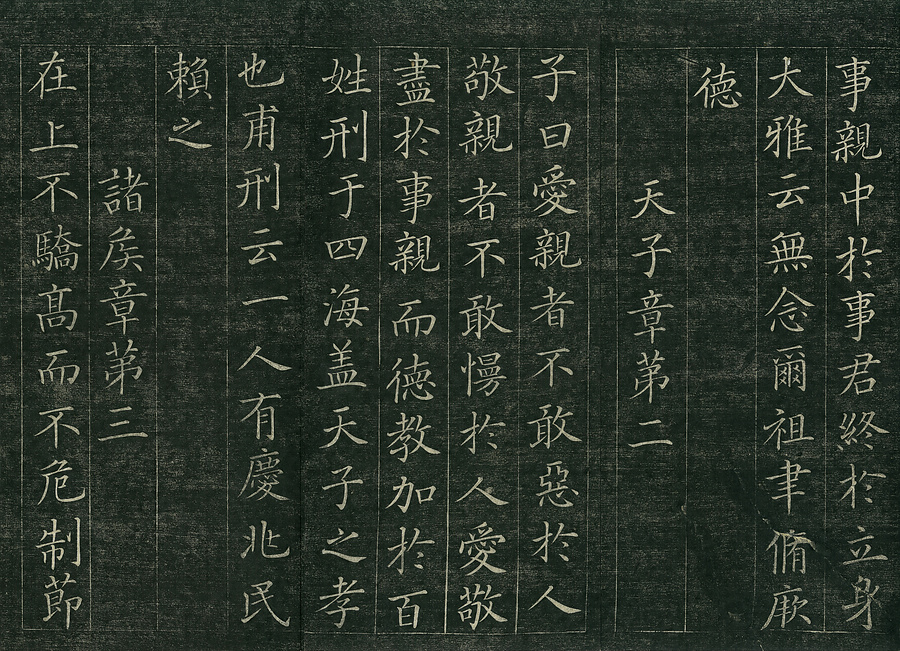 事親中於事君終於立身
大雅云無念爾祖聿脩厥
德
天子章第二
子曰愛親者不敢惡於人
敬親者不敢慢於人愛敬
盡於事親而德教加於百
姓刑于四海盖天子之孝
也甫刑云一人有慶兆民
賴之
諸侯章第三
在上不驕髙而不危制節